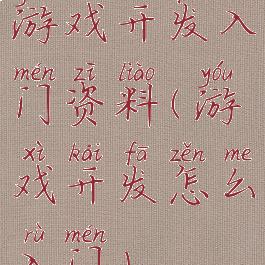 游戏开发入
mén zī liào yóu
门资料(游
xì kāi fā zěn me
戏开发怎么
rù mén
入门)